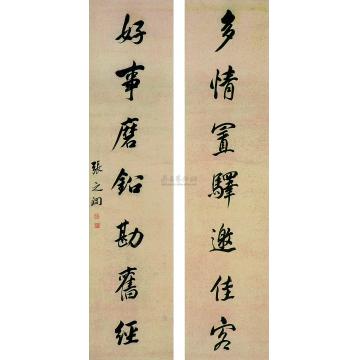 多情置驛邀佳客
好事磨鉛勘舊經
張之洞